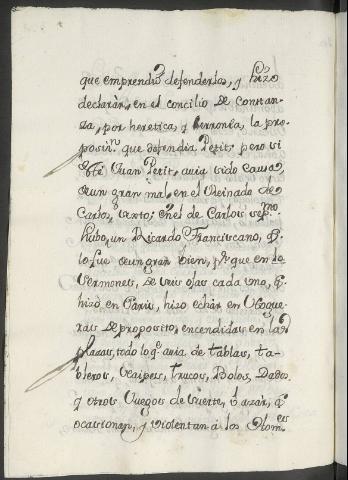 que emprendio defenderlos, y hizo
declarar, en el concilio de constan-
za, por heretica, y herronea, la pro-
posiⁿ. que defendia Petit, pero si
este Juan Petit, auia sido causa,
de un gran mal, en el Reinado de
Carlos, sexto; en el de Carlos sepᵐᵒ
hubo, un Ricardo Franciscano, q.
lo fue de un gran bien, pr que en los
sermones, de seis oras cada uno, q.
hizo en Paris, hizo echar en Hogue-
ras de proposito, encendidas en las
plazas, todo lo q. auia de tablas, ta-
bleros, Naipes, trucos, Bolos, Dados,
y otros Juegos de suerte, ò azar, q.
ocassionan, y violentan à los Homᵉˢ